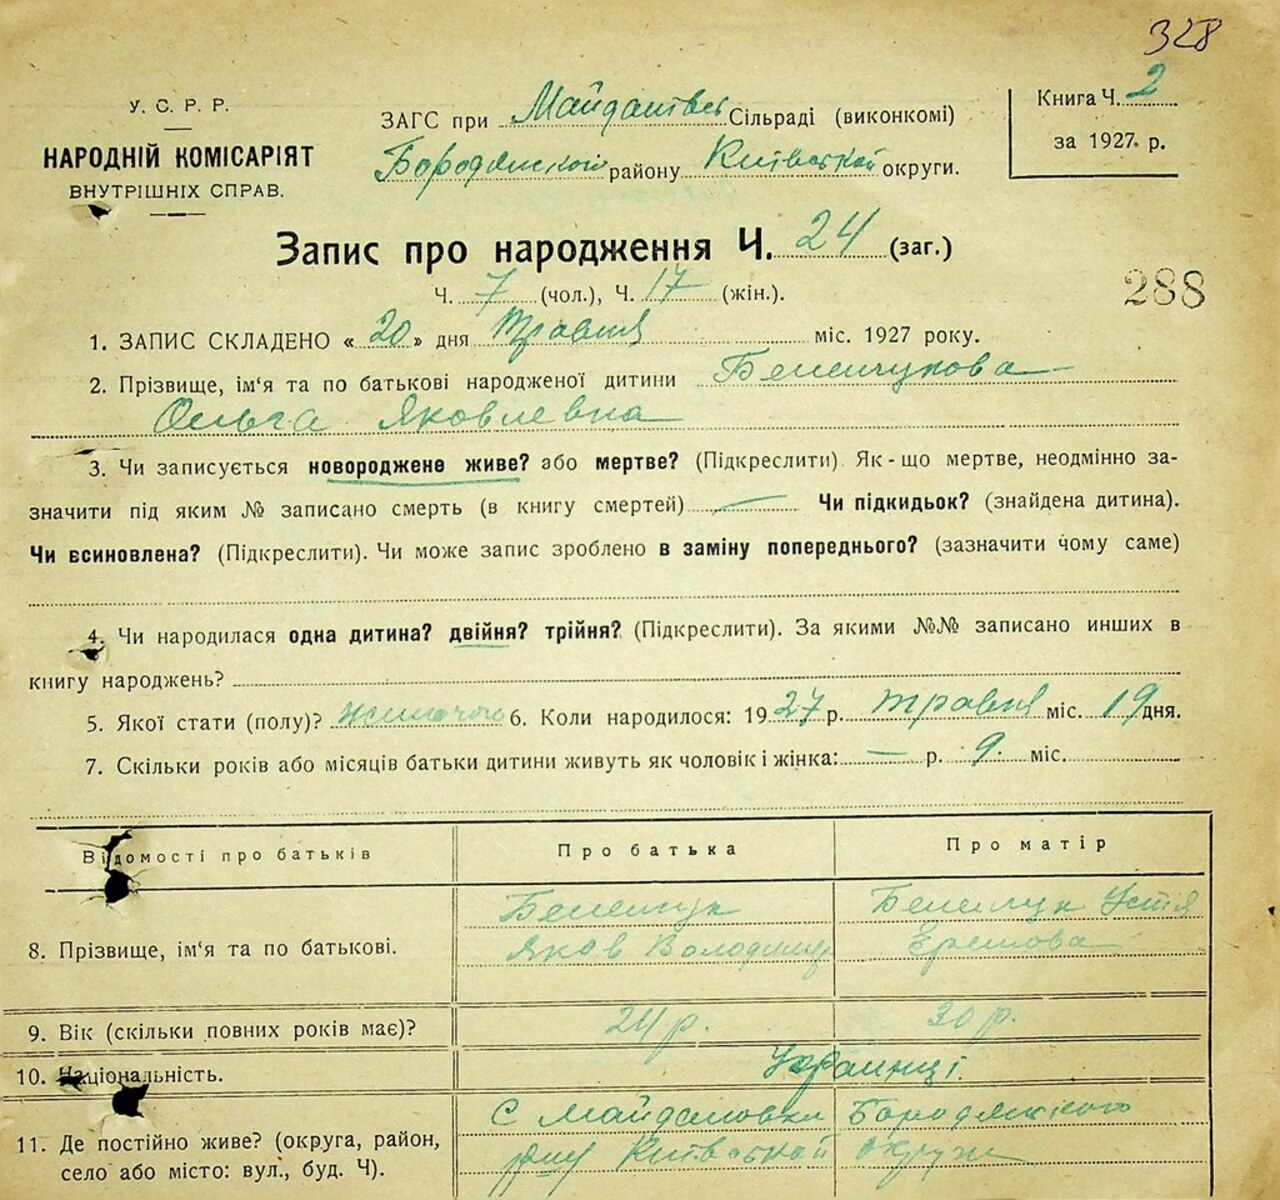 328
У. С. Р. Р.
НАРОДНІЙ КОМІСАРІЯТ
ВНУТРІШНІХ СПРАВ.
ЗАГС при Сільраді (виконкомі)
Бородянского району Київської округи.
Книга Ч. 2
за 1927. р.
Запис про народження Ч. 24 (заг.)
Ч. 7 (чол.), Ч. 17 (жін.).
288
1. ЗАПИС СКЛАДЕНО « 20 » дня Травня міс. 1927 року.
2. Прізвище, ім'я та по батькові народженої дитини
Ольга Яковлевна
3. Чи записується новороджене живе? або мертве? (Підкреслити) Як-що мертве, неодмінно за-
значити під яким № записано смерть (в книгу смертей) — Чи підкидьок? (знайдена дитина).
Чи всиновлена? (Підкреслити). Чи може запис зроблено в заміну попереднього? (зазначити чому саме)
4. Чи народилася одна дитина? двійня? трійня? (Підкреслити). За якими №№ записано инших в
книгу народжень?
5. Якої стати (полу)? жіночого 6. Коли народилося: 1927 р. травня міс. 19 дня.
7. Скільки років або місяців батьки дитини живуть як чоловік і жінка: — р. 9 міс.
Відомості про батьків Про батька Про матір
8. Прізвище, ім'я та по батькові.
Яков Володимир
9. Вік (скільки повних років має)? 24 р. 30 р.
10. Національність. Українці.
11. Де постійно живе? (округа, район,
село або місто: вул., буд. Ч).
С Бородянского
Київської округи